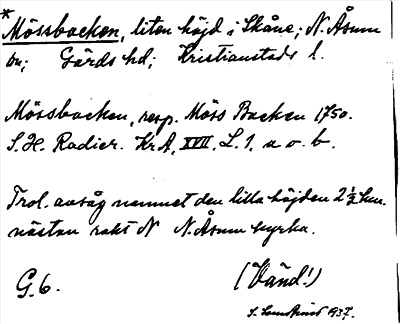 * Mössbacken, liten höjd i Skåne; N. Åsum
sn; Gärds hd; Kristianstads l.
Mössbacken, resp. Möss Backen 1750.
S. H. Radier. KrA, XVII, L. 1, a o. b.
Trol. avsåg namnet den lilla höjden 2 ½ km.
nästan rakt N N. Åsum kyrka.
G. 6.
(Vänd!)
S. 1937.